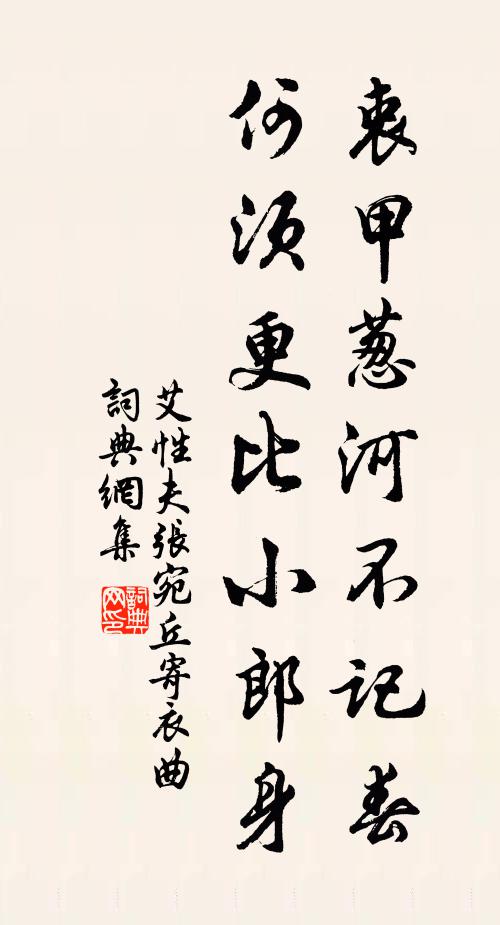 衷甲葱河不记春
何须更比小郎身
艾性夫張宛丘寄衣曲
詞典網集
詞典
网印